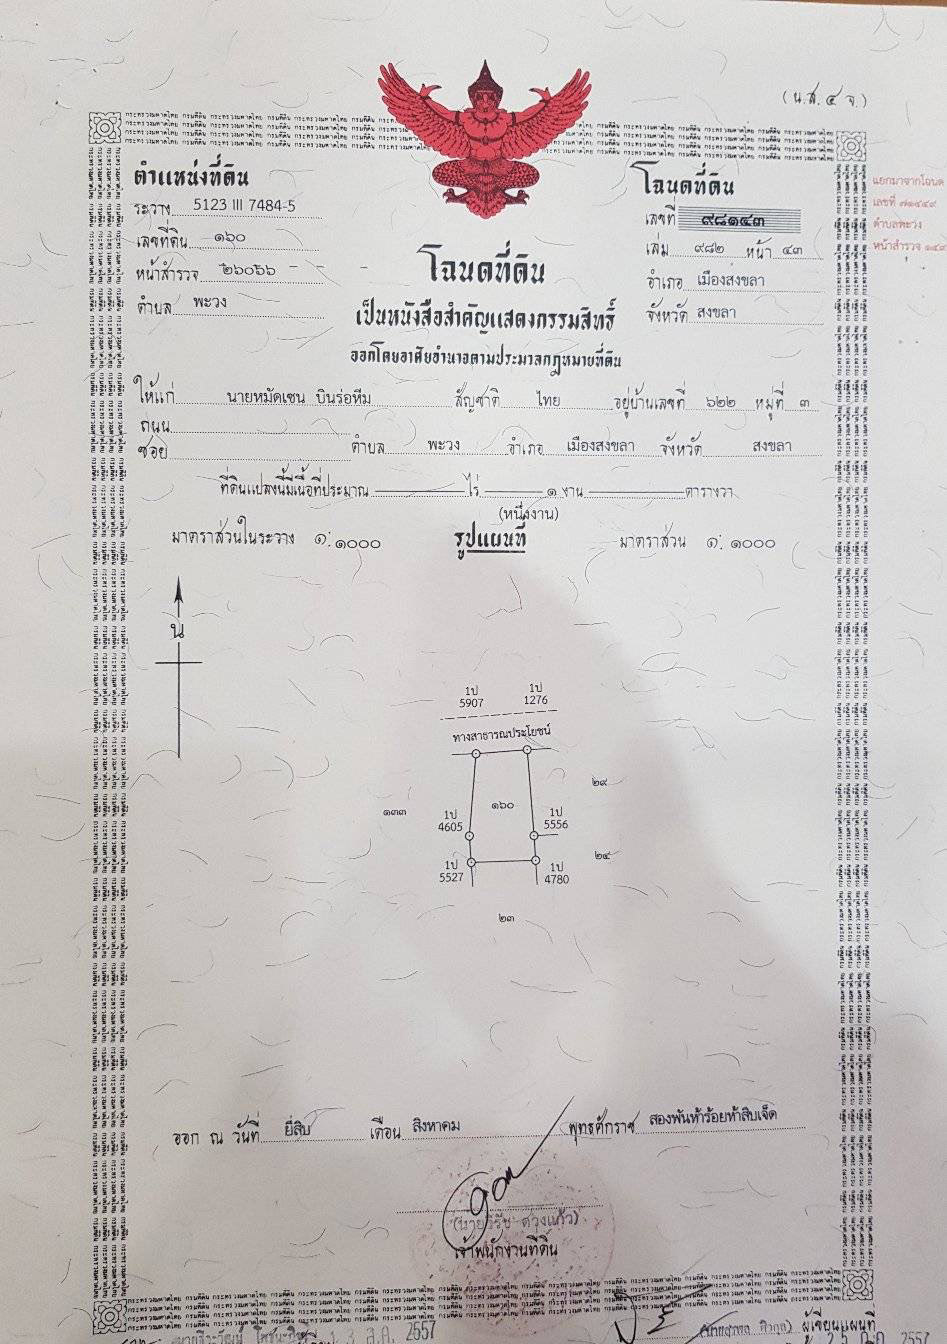 (น.ส.๔ จ.)
ตำแหน่งที่ดิน
ระวาง 5123 III 7484-5
เลขที่ดิน ๑๖๐
หน้าสำรวจ ๒๖๐๖๖ - -
ตำบล พะวง
โฉนดที่ดิน
เลขที่ ๙๘๑๔๓
เล่ม ๙๘๒ หน้า ๔๓
อำเภอ เมืองสงขลา
จังหวัด สงขลา
แยกมาจากโฉนด
เลขที่
ตำบลพะวง
หน้าสำรวจ
โฉนดที่ดิน
เป็นหนังสือสำคัญแสดงกรรมสิทธิ์
ออกโดยอาศัยอำนาจตามประมวลกฎหมายที่ดิน
ให้แก่ นายหมัดเซน บินร่อหีม สัญชาติ ไทย อยู่บ้านเลขที่ ๖๒๒ หมู่ที่ ๓
ถนน
ซอย ตำบล พะวง อำเภอ เมืองสงขลา จังหวัด สงขลา
ที่ดินแปลงนี้มีเนื้อที่ประมาณ ไร่ ๑ งาน ตารางวา
(หนึ่งงาน)
มาตราส่วนในระวาง ๑:๑๐๐๐ รูปแผนที่ มาตราส่วน ๑: ๑๐๐๐
น
1ป 1ป
5907 1276
ทางสาธารณประโยชน์
๒๙
๑๓๓ ๑๖๐
1ป 1ป
4605 5556
๒๔
1ป 1ป
5527 4780
๒๓
ออก ณ วันที่ ยี่สิบ เดือน สิงหาคม พุทธศักราช สองพันห้าร้อยห้าสิบเจ็ด
(นายวิรัช ดวงแก้ว)
เจ้าพนักงานที่ดิน
ผู้เขียนแผนที่
ส.ค. 2557